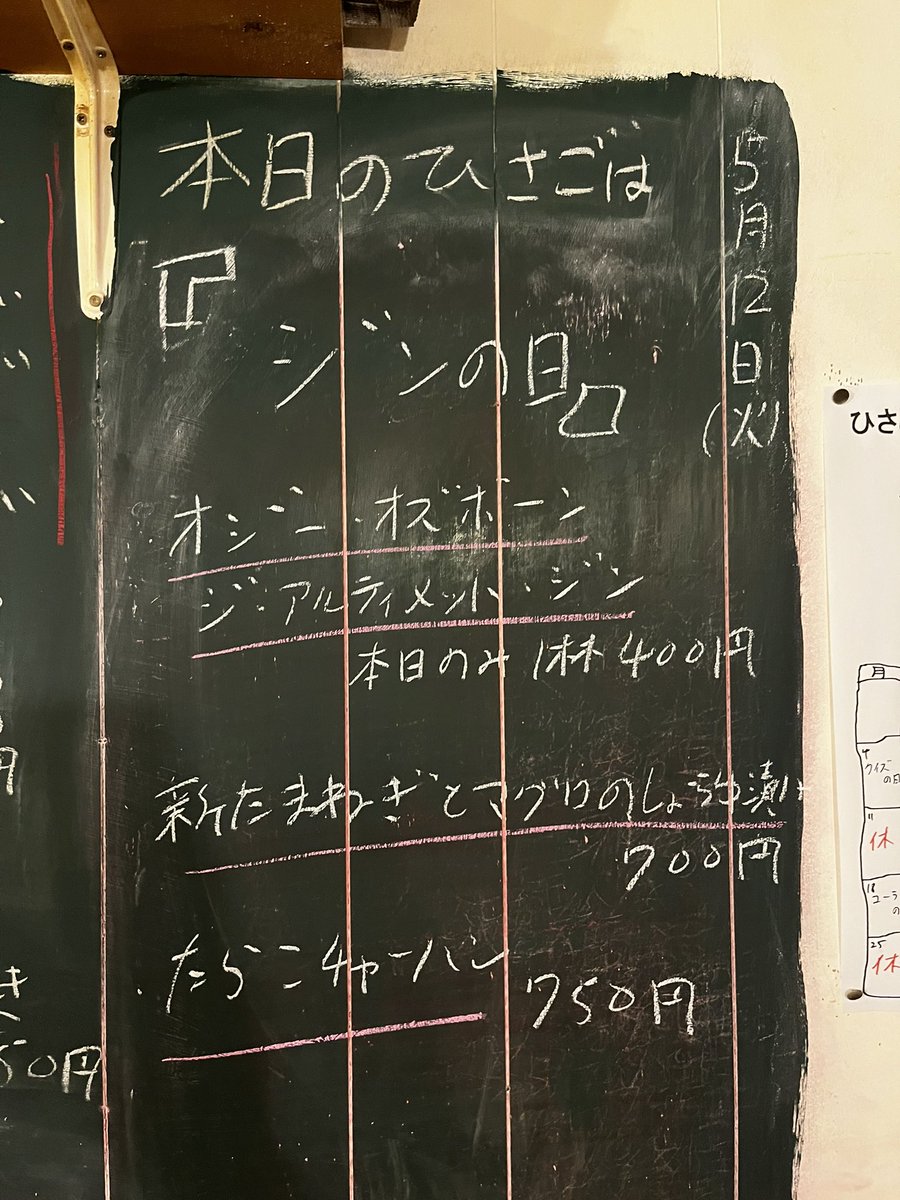 本日のひさごは
『ジンの日』
5月12日(火)
オジー・オズボーン
ジ・アルティメット・ジン
本日のみ 1杯 400円
新たまねぎとマグロのしょう油漬け
700円
たらこチャーハン
750円
き
50円
円
ひさ
月
4
クイズ
の日
11
休
18
コーラ
の
25
休